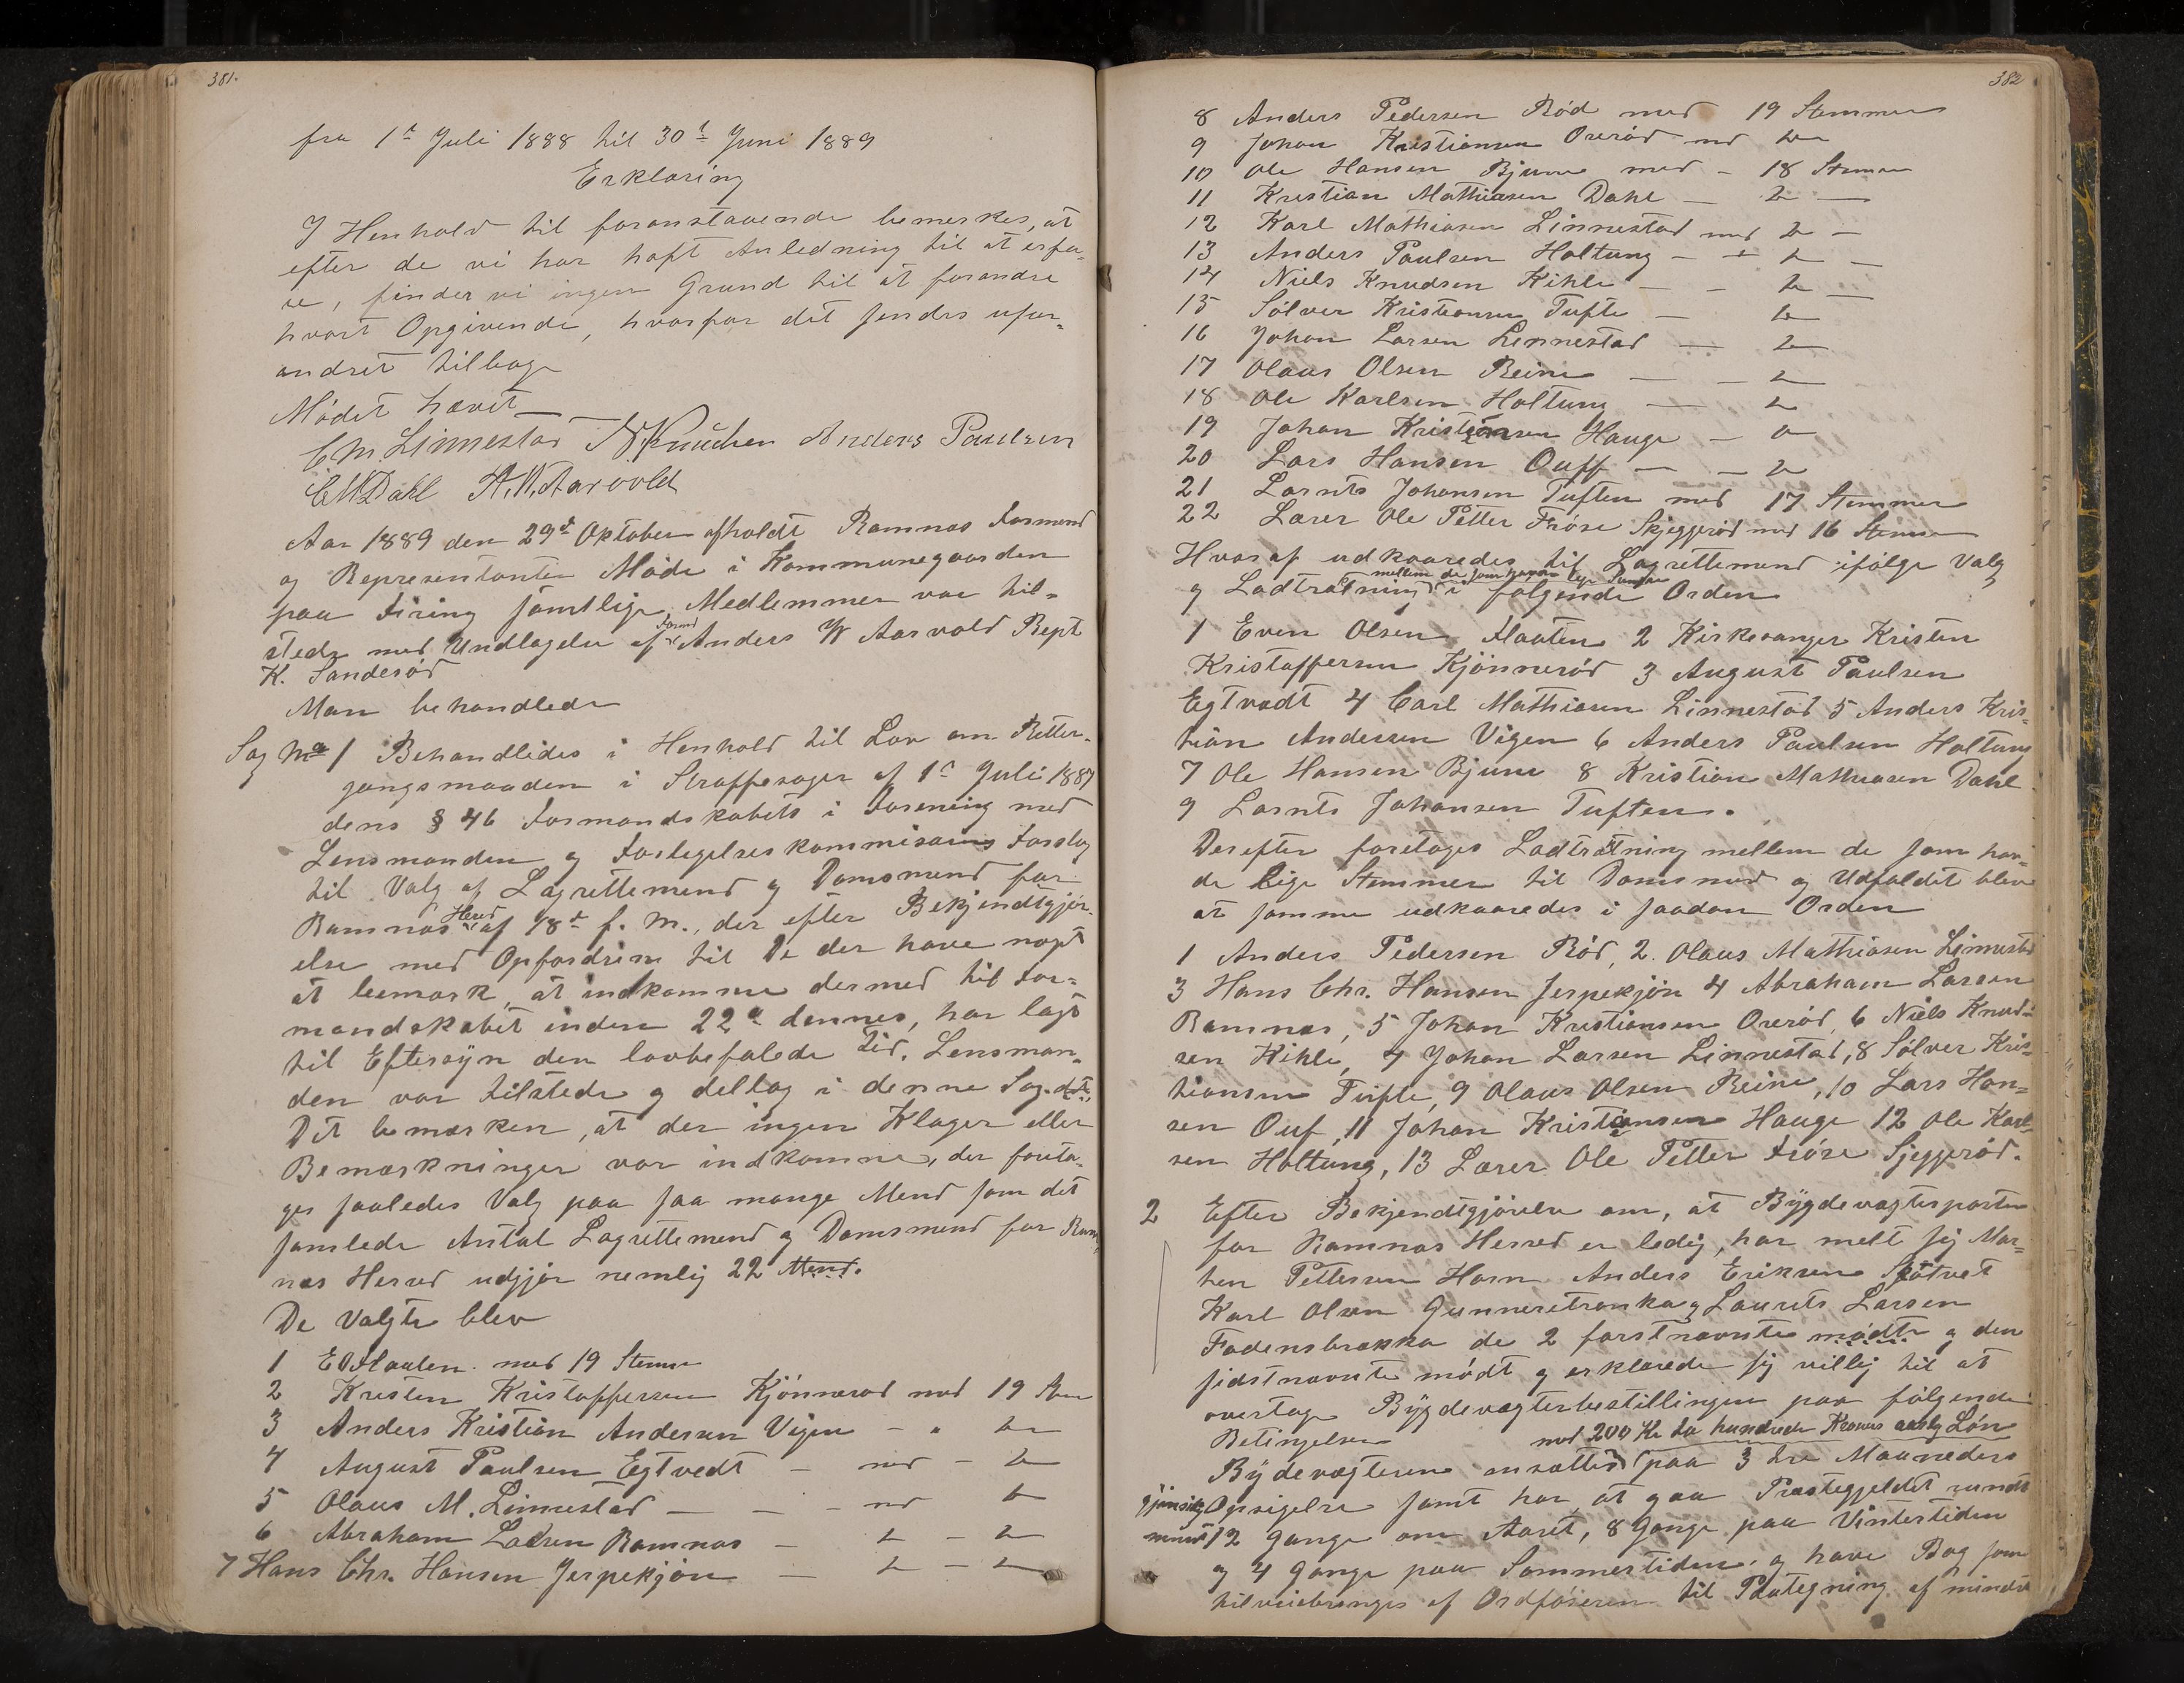 381.
fra 1ste Juli 1888 til 30te Juni 1889
Erklæring
I Henhold til foranstaaende bemerkes, at
efter de vi har haft Anledning til at erfa-
re, finder vi ingen Grund til at forandre
hvort Opgivende, hvorfor det sendes ufor-
andret tilbage
Mödet hævet
C M. Linnestad N Knudsen Anders Paulsen
C M Dahl A. W. Aarvold
Aar 1889 den 29de Oktober afholdt Ramnæs Formend
og Representanter Möde i Kommunegaarden
paa Firing samtlige Medlemmer var til-
stede med Undtagelse af Formd Anders W Aarvold Rept
K. Sanderöd
Man behandlede
Sag No 1 Behandledes i Henhold til Lov om Retter-
gangsmaaden i Straffesager af 1ste Juli 1887
dens § 46 Formandskabets i Forening med
Lensmanden og Forlegelseskommisærens Forslag
til Valg af Lagrettemend og Domsmend for
Ramnæs Hered af 18de f. M., der efter Bekjendtgjör-
else med Opfordring til De der have nogt
at bemærk, at indkomme dermed til For-
mandskabet inden 22de dennes, har lagt
til Eftersyn den lovbefalede Tid. Lensman-
den var tilstede og deltog i denne Sag.
Det bemærkes, at der ingen Klager eller
Bemærkninger var indkomne, der foreta-
ges saaledes Valg paa saa mange Mend som det
samlede Antal Lagrettemend og Domsmend for Ram-
næs Herred udgjör nemlig 22 Mend.
De Valgte blev
1 E O Haalen med 19 Stemer
2 Kristen Kristoffersen Kjönneröd med 19 Stm
3 Anders Kristian Andersen Vigen - " do
4 August Paulsen Egtvedt - med - do
5 Olaus M. Linnestad - - med do
6 Abraham Larsen Ramnæs - do - do
7 Hans Chr. Hansen Jerpekjön - do - do
382
8 Anders Pedersen Röd med 19 Stemmer
9 Johan Kristiansen Oreröd md do
10 Ole Hansen Bjune med - 18 Stemer
11 Kristian Mathiasen Dahl - do -
12 Karl Mathiasen Linnestad med do -
13 Anders Paulsen Holtung - + do -
14 Niels Knudsen Kihle - - do -
15 Sölver Kristiansen Tufte - do
16 Johan Larsen Linnestad - do
17 Olaus Olsen Reine - - do
18 Ole Karlsen Holtung - do
19 Johan Kristiansen Hauge - do
20 Lars Hansen Ouff - - do
21 Larnts Johansen Tuften med 17 Stemmer
22 Lærer Ole Petter Fröse Skjeggeröd med 16 Stemer
Hvoraf udkaaredes til Lagrettemend ifölge Valg
og Lodtrækning mellem de som havde lige Stemmer i fölgende Orden
1 Even Olsen Haalen 2 Kirkesanger Kristen
Kristoffersen Kjönneröd 3 August Paulsen
Egtvedt 4 Carl Mathiasen Linnestad 5 Anders Kris-
tian Andersen Vigen 6 Anders Paulsen Holtung
7 Ole Hansen Bjune 8 Kristian Mathiasen Dahl
9 Larnts Johansen Tuften.
Derefter foretages Lodtrækning mellem de som hav-
de lige Stemmer til Domsmend og Udfaldet blev
at samme udkaaredes i saadan Orden
1 Anders Pedersen Röd, 2. Olaus Mathiasen Linnestad
3 Hans Chr. Hansen Jerpekjön 4 Abraham Larsen
Ramnæs, 5 Johan Kristiansen Oreröd, 6 Niels Knud-
sen Kihle, 7 Johan Larsen Linnestad, 8 Sölver Kris-
tiansen Tufte, 9 Olaus Olsen Reine, 10 Lars Han-
sen Ouf, 11 Johan Kristiansen Hauge 12 Ole Karl-
sen Holtung, 13 Lærer Ole Petter Fröse Sjeggeröd.
2 Efter Bekjendtgjörelse om, at Bygdevægterposten
for Ramnæs Herred er ledig, har melt sig Mor-
ten Pettersen Horn Anders Eriksen Skötvet
Karl Olsen Gunneretranka og Laurits Larsen
Fadensbrækka de 2 förstnævnte mödte og den
sidstnævnte mödt og erklærede sig villig til at
overtage Bygdevægterbestillingen paa fölgende
Betingelser
med 200 Kr to hundrede Kroner aarlig Lön
Bydevægteren ansættes paa 3 tre Maaneders
gjensidig Opsigelse samt har at gaa Præstegjeldet rundt
mindst 12 gange om Aaret, 8 Gange paa Vintertiden
og 4 Gange paa Sommertiden, og have Bog som
tilveiebringes af Ordföreren til Paategning af mindst